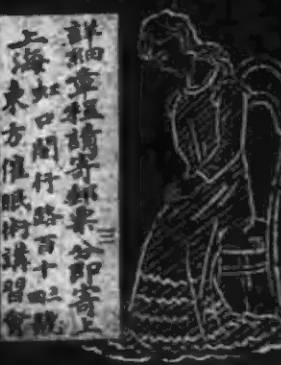 詳細章程請寄郵票三分即寄上
上海虹口閔行路百十四號
東方催眠術講習會